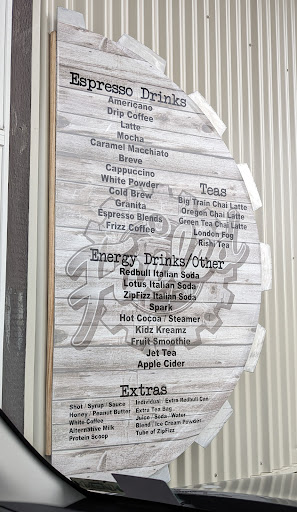 Espresso Drinks
Americano
Drip Coffee
Latte
Mocha
Caramel Macchiato
Breve
Cappuccino
White Powder
Cold Brew
Granita
Espresso Blends
Frizz Coffee
Teas
Big Train Chai Latte
Oregon Chai Latte
Green Tea Chai Latte
London Fog
Rishi Tea
Energy Drinks/Other
Redbull Italian Soda
Lotus Italian Soda
ZipFizz Italian Soda
Spark
Hot Cocoa / Steamer
Kidz Kreamz
Fruit Smoothie
Jet Tea
Apple Cider
Extras
Shot / Syrup / Sauce
Honey / Peanut Butter
White Coffee
Alternative Milk
Protein Scoop
Individual / Extra Redbull Can
Extra Tea Bag
Juice / Soda / Water
Blend / Ice Cream Powder
Tube of ZipFizz